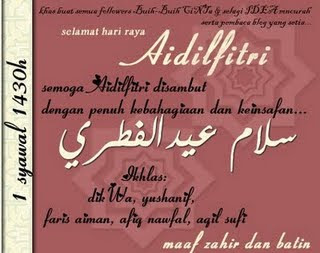 khas buat semua followers Buih-Buih CiNTa & selagi IDEA mncurah
serta pembaca blog yang setia...
selamat hari raya
Aidilfitri
semoga Aidilfitri disambut
dengan penuh kebahagiaan dan keinsafan...
سلام عيد الفطري
Ikhlas:
dik Wa, yushanif,
faris aiman, afiq naufal, aqil sufi
maaf zahir dan batin
1 syawal 1430h